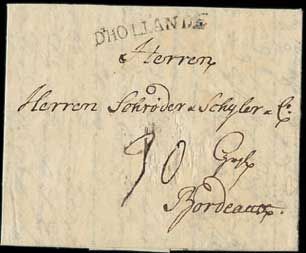 D'HOLLANDE
Herren
Herren Schröder & Schyler & Co.
30
Bordeaux